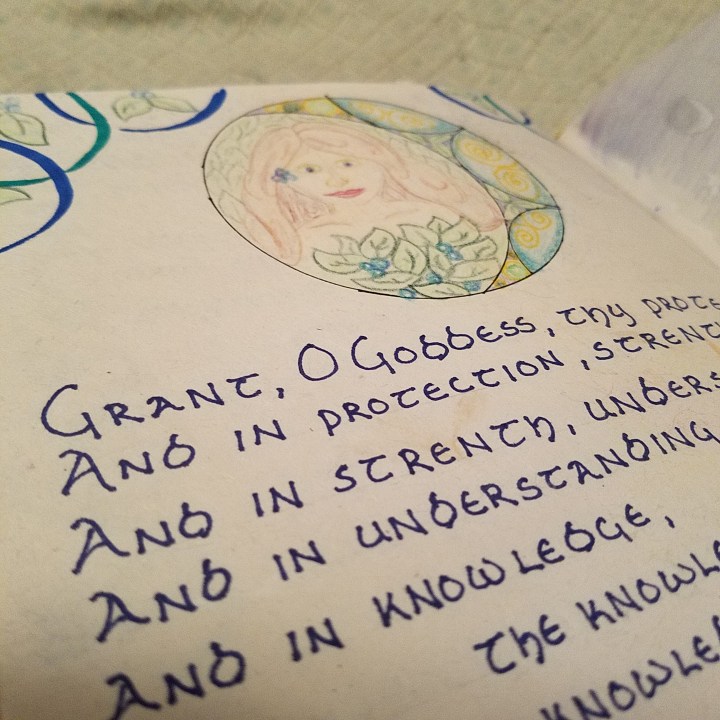 GRANT, O GODDESS, THY PROTE
AND IN PROTECTION, STRENT
AND IN STRENTH, UNDERS
AND IN UNDERSTANDING
AND IN KNOWLEDGE,
THE KNOWLE
AND
KNOWLE